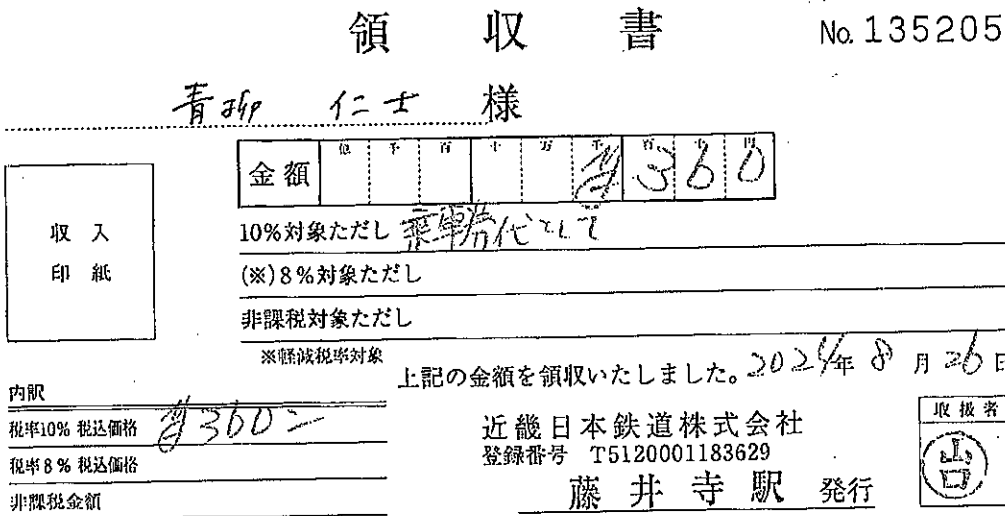 領 収 書
No. 135205
青柳 仁士 様
金額 億 千 百 十 万 千 百 十 円
¥360
10%対象ただし 乗車券代として
(※)8%対象ただし
非課税対象ただし
※軽減税率対象
収入
印紙
上記の金額を領収いたしました。2024年 8月 26日
内訳
税率10% 税込価格 ¥360-
税率8% 税込価格
非課税金額
近畿日本鉄道株式会社
登録番号 T5120001183629
藤井寺駅 発行
取扱者